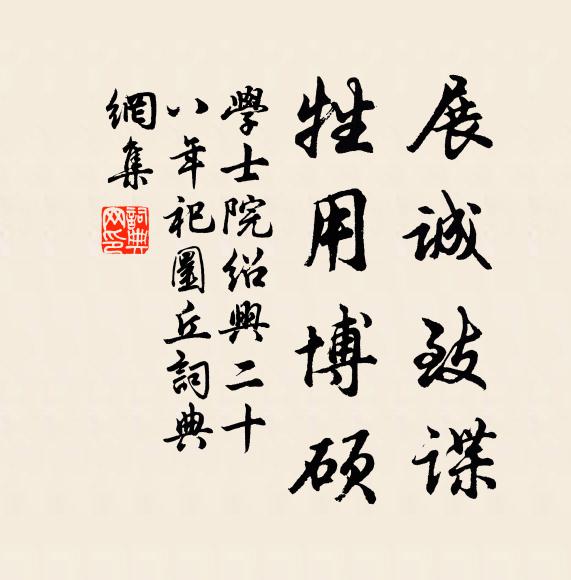 展誠致諜
牲用博碩
學士院紹興二十
八年祀圜丘詞典
網集
詞典網印